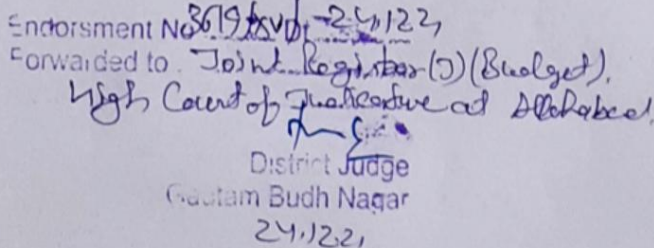 Endorsment No 3619/XVDt-24.12.21
Forwarded to Joint Registrar (J) (Budget),
High Court of Judicature at Allahabad
District Judge
Gautam Budh Nagar
24.12.21